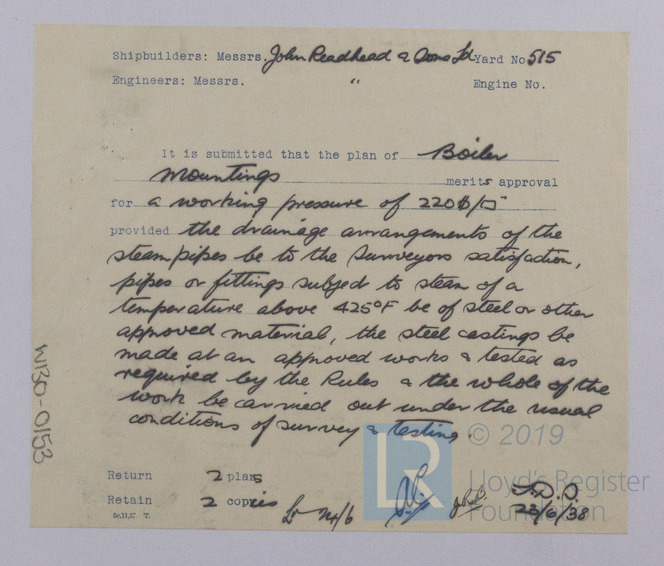 Shipbuilders: Messrs. John Readhead & Sons Ld Yard No. 515
Engineers: Messrs. " Engine No.
It is submitted that the plan of Boiler
Mountings merits approval
for a working pressure of 220 lb/□"
provided the drainage arrangements of the
steam pipes be to the Surveyors satisfaction,
pipes or fittings subject to steam of a
temperature above 425°F be of steel or other
approved material, the steel castings be
made at an approved works & tested as
required by the Rules & the whole of the
work be carried out under the usual
conditions of survey & testing.
W130-0153
Return 2 plans
Retain 2 copies
23/6/38
© 2019
LR
Lloyd's Register
Foundation